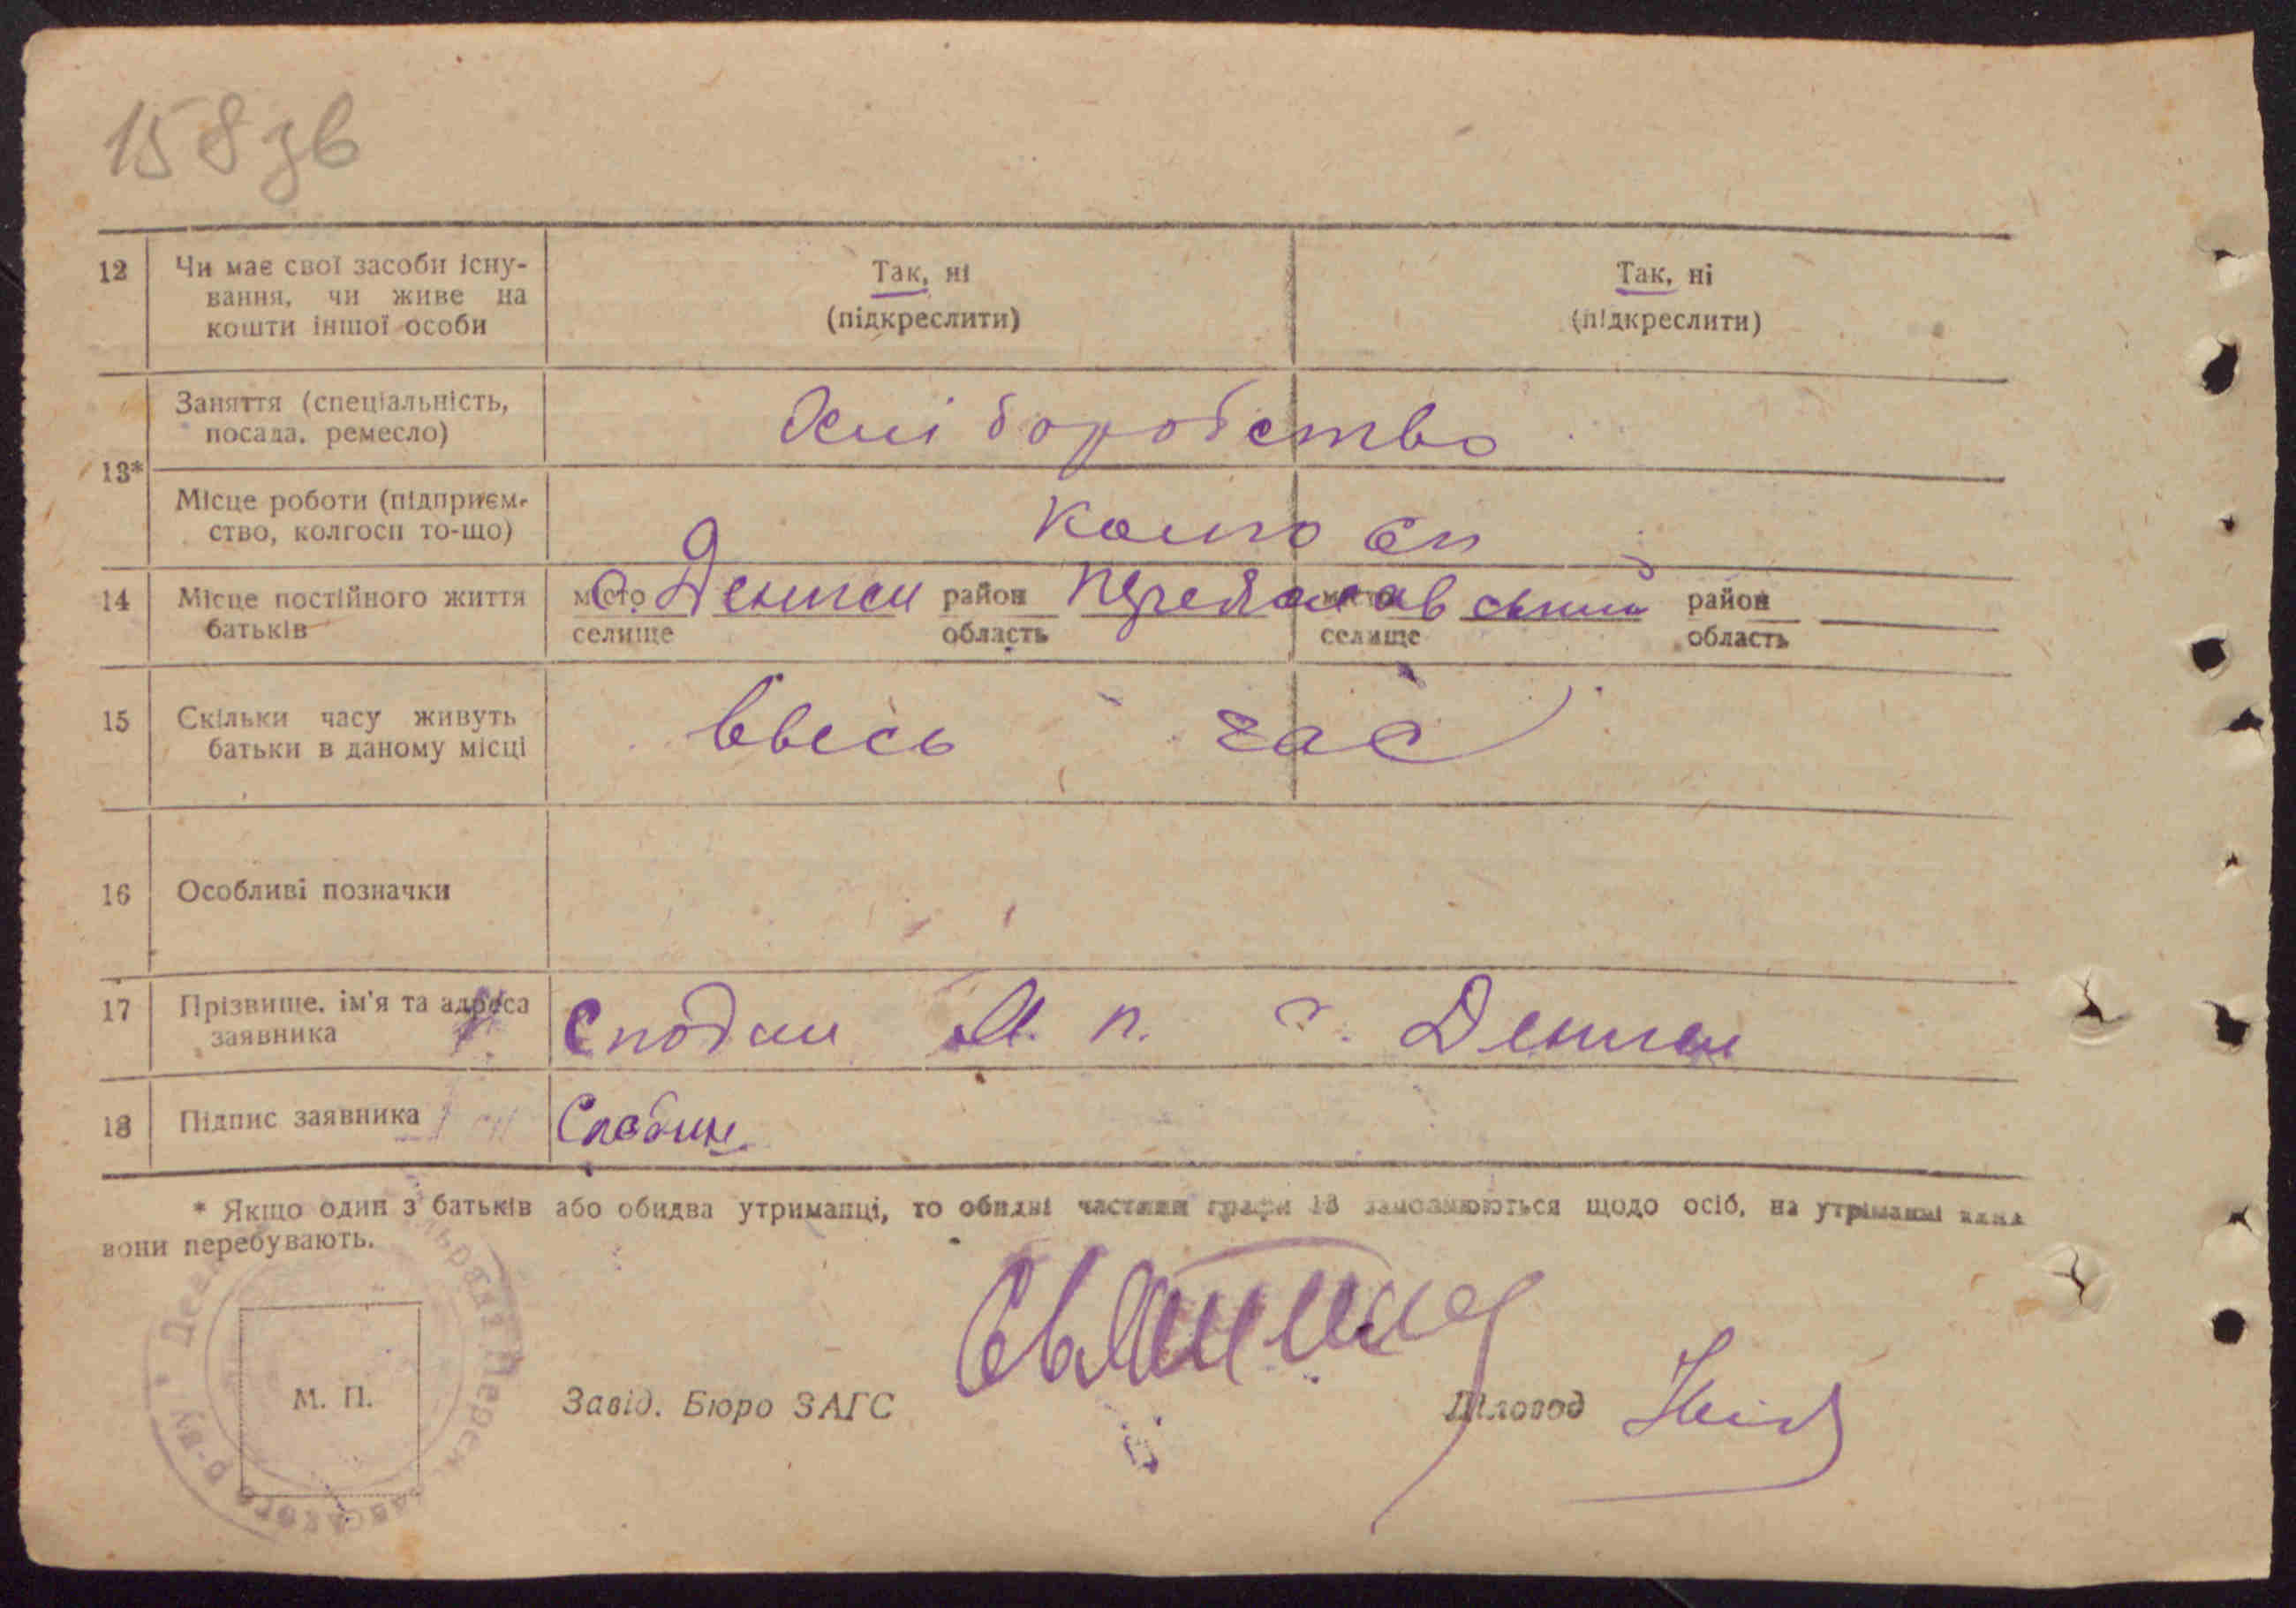 158 зв
12 Чи має свої засоби існу-
вання, чи живе на
кошти іншої особи
Так, ні
(підкреслити)
Так, ні
(підкреслити)
13*
Заняття (спеціальність,
посада, ремесло)
Хліборобство
Місце роботи (підприєм-
ство, колгосп то-що)
Колгосп
14 Місце постійного життя
батьків
місто
селище
с. Деньги
район
область
место
селище
район
область
15 Скільки часу живуть
батьки в даному місці
ввесь час
16 Особливі позначки
17 Прізвище, ім'я та адреса
заявника
М. П. с. Деньги
18 Підпис заявника
* Якщо один з батьків або обидва утриманці, то обидві частини графи 13 заповнюються щодо осіб, на утриманні яких
вони перебувають.
М. П.
Завід. Бюро ЗАГС
Діловод